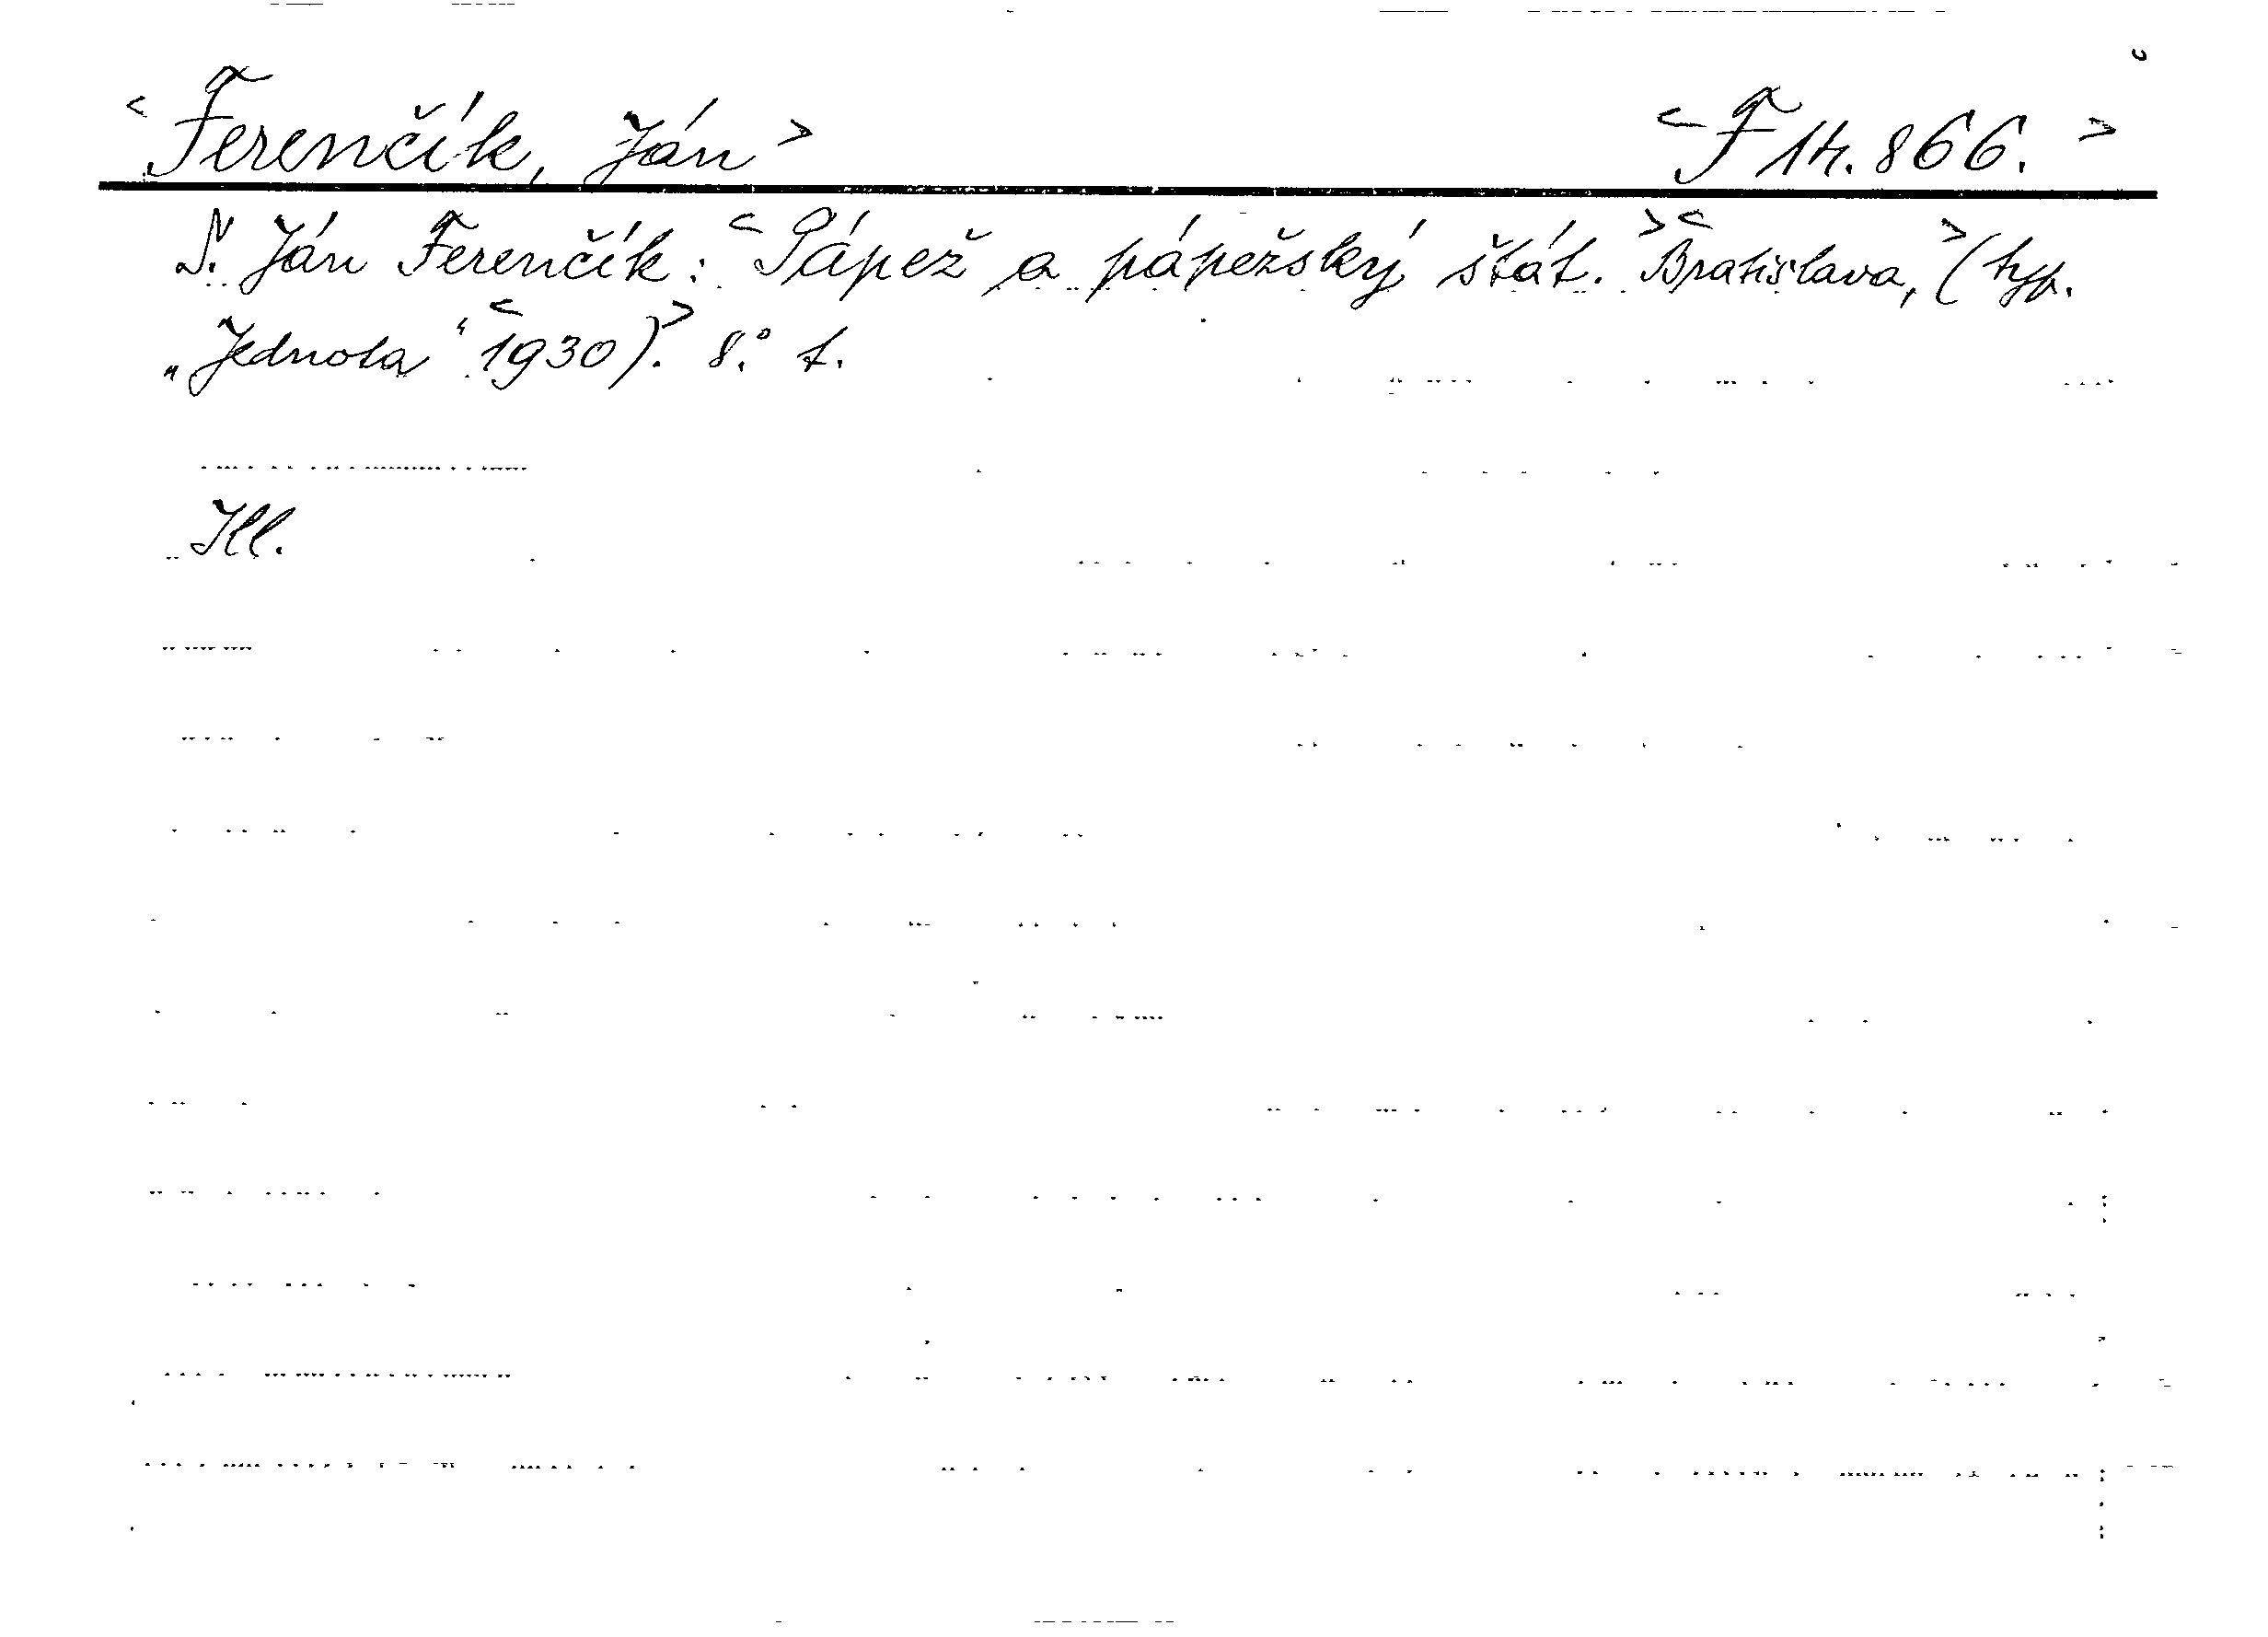 <Ferenčík, Ján> <F 14.866.>
Ján Ferenčík: <Pápež a pápežský štát.> <Bratislava,> (typ.
„Jednota“ <1930).> 8.° t.
Ill.